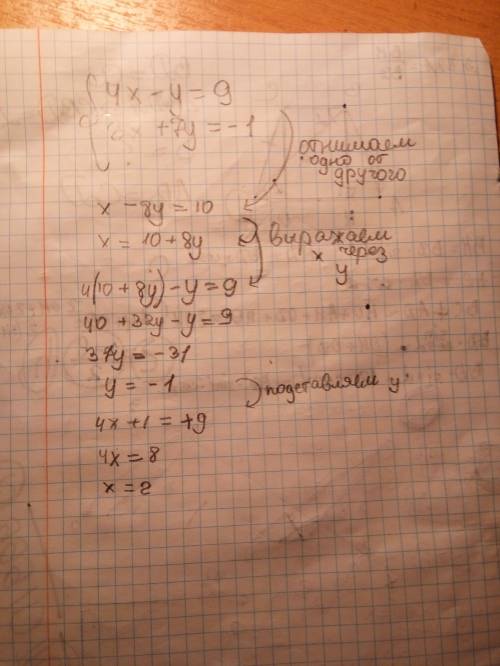 4x - y = 9
x + 7y = -1
отнимаем
одно от
другого
x - 8y = 10
x = 10 + 8y
выражаем
x через
y
4(10 + 8y) - y = 9
40 + 32y - y = 9
31y = -31
y = -1
подставляем y
4x + 1 = +9
4x = 8
x = 2